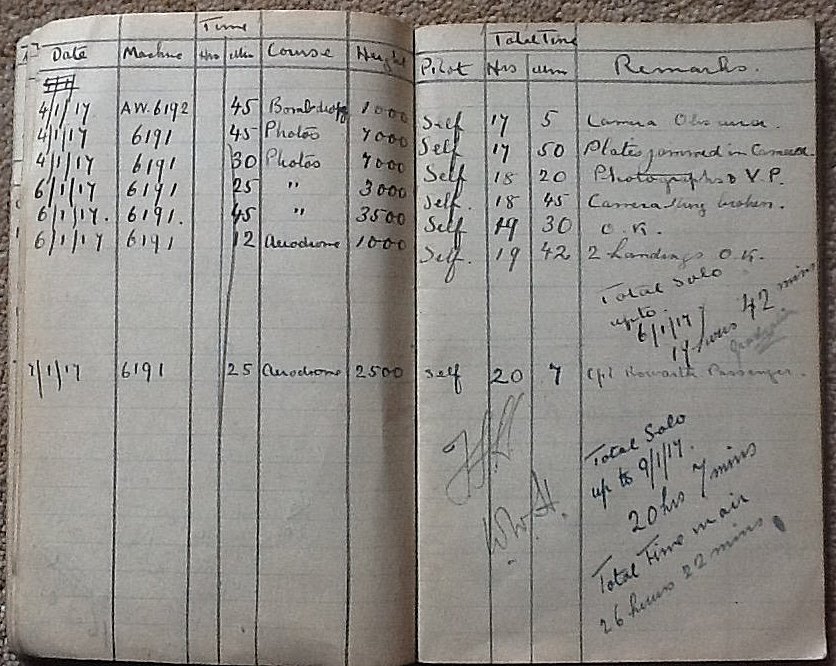 Time
Date Machine Hrs Mins Course Height
4/1/17 AW. 6192 45 Bombdropg 1000
4/1/17 6191 45 Photos 7000
4/1/17 6191 30 Photos 7000
6/1/17 6191 25 " 3000
6/1/17. 6191. 45 " 3500
6/1/17 6191 12 Aerodrome 1000
6191 25 Aerodrome 2500
Total Time
Pilot Hrs Mins Remarks.
Self 17 5 Camera Obscura.
Self 17 50 Plates jammed in Camera.
Self 18 20 Photographs V.P.
Self. 18 45 Camera broken.
Self 19 30 O.K.
Self. 19 42 2 Landings O.K.
Total Solo
up to
6/1/17
hours 42 mins
Self 20 7 Passenger.
Total Solo
up to 9/1/17.
20 hrs 7 mins
Total Time in air
26 hours 22 mins
W.W.H.